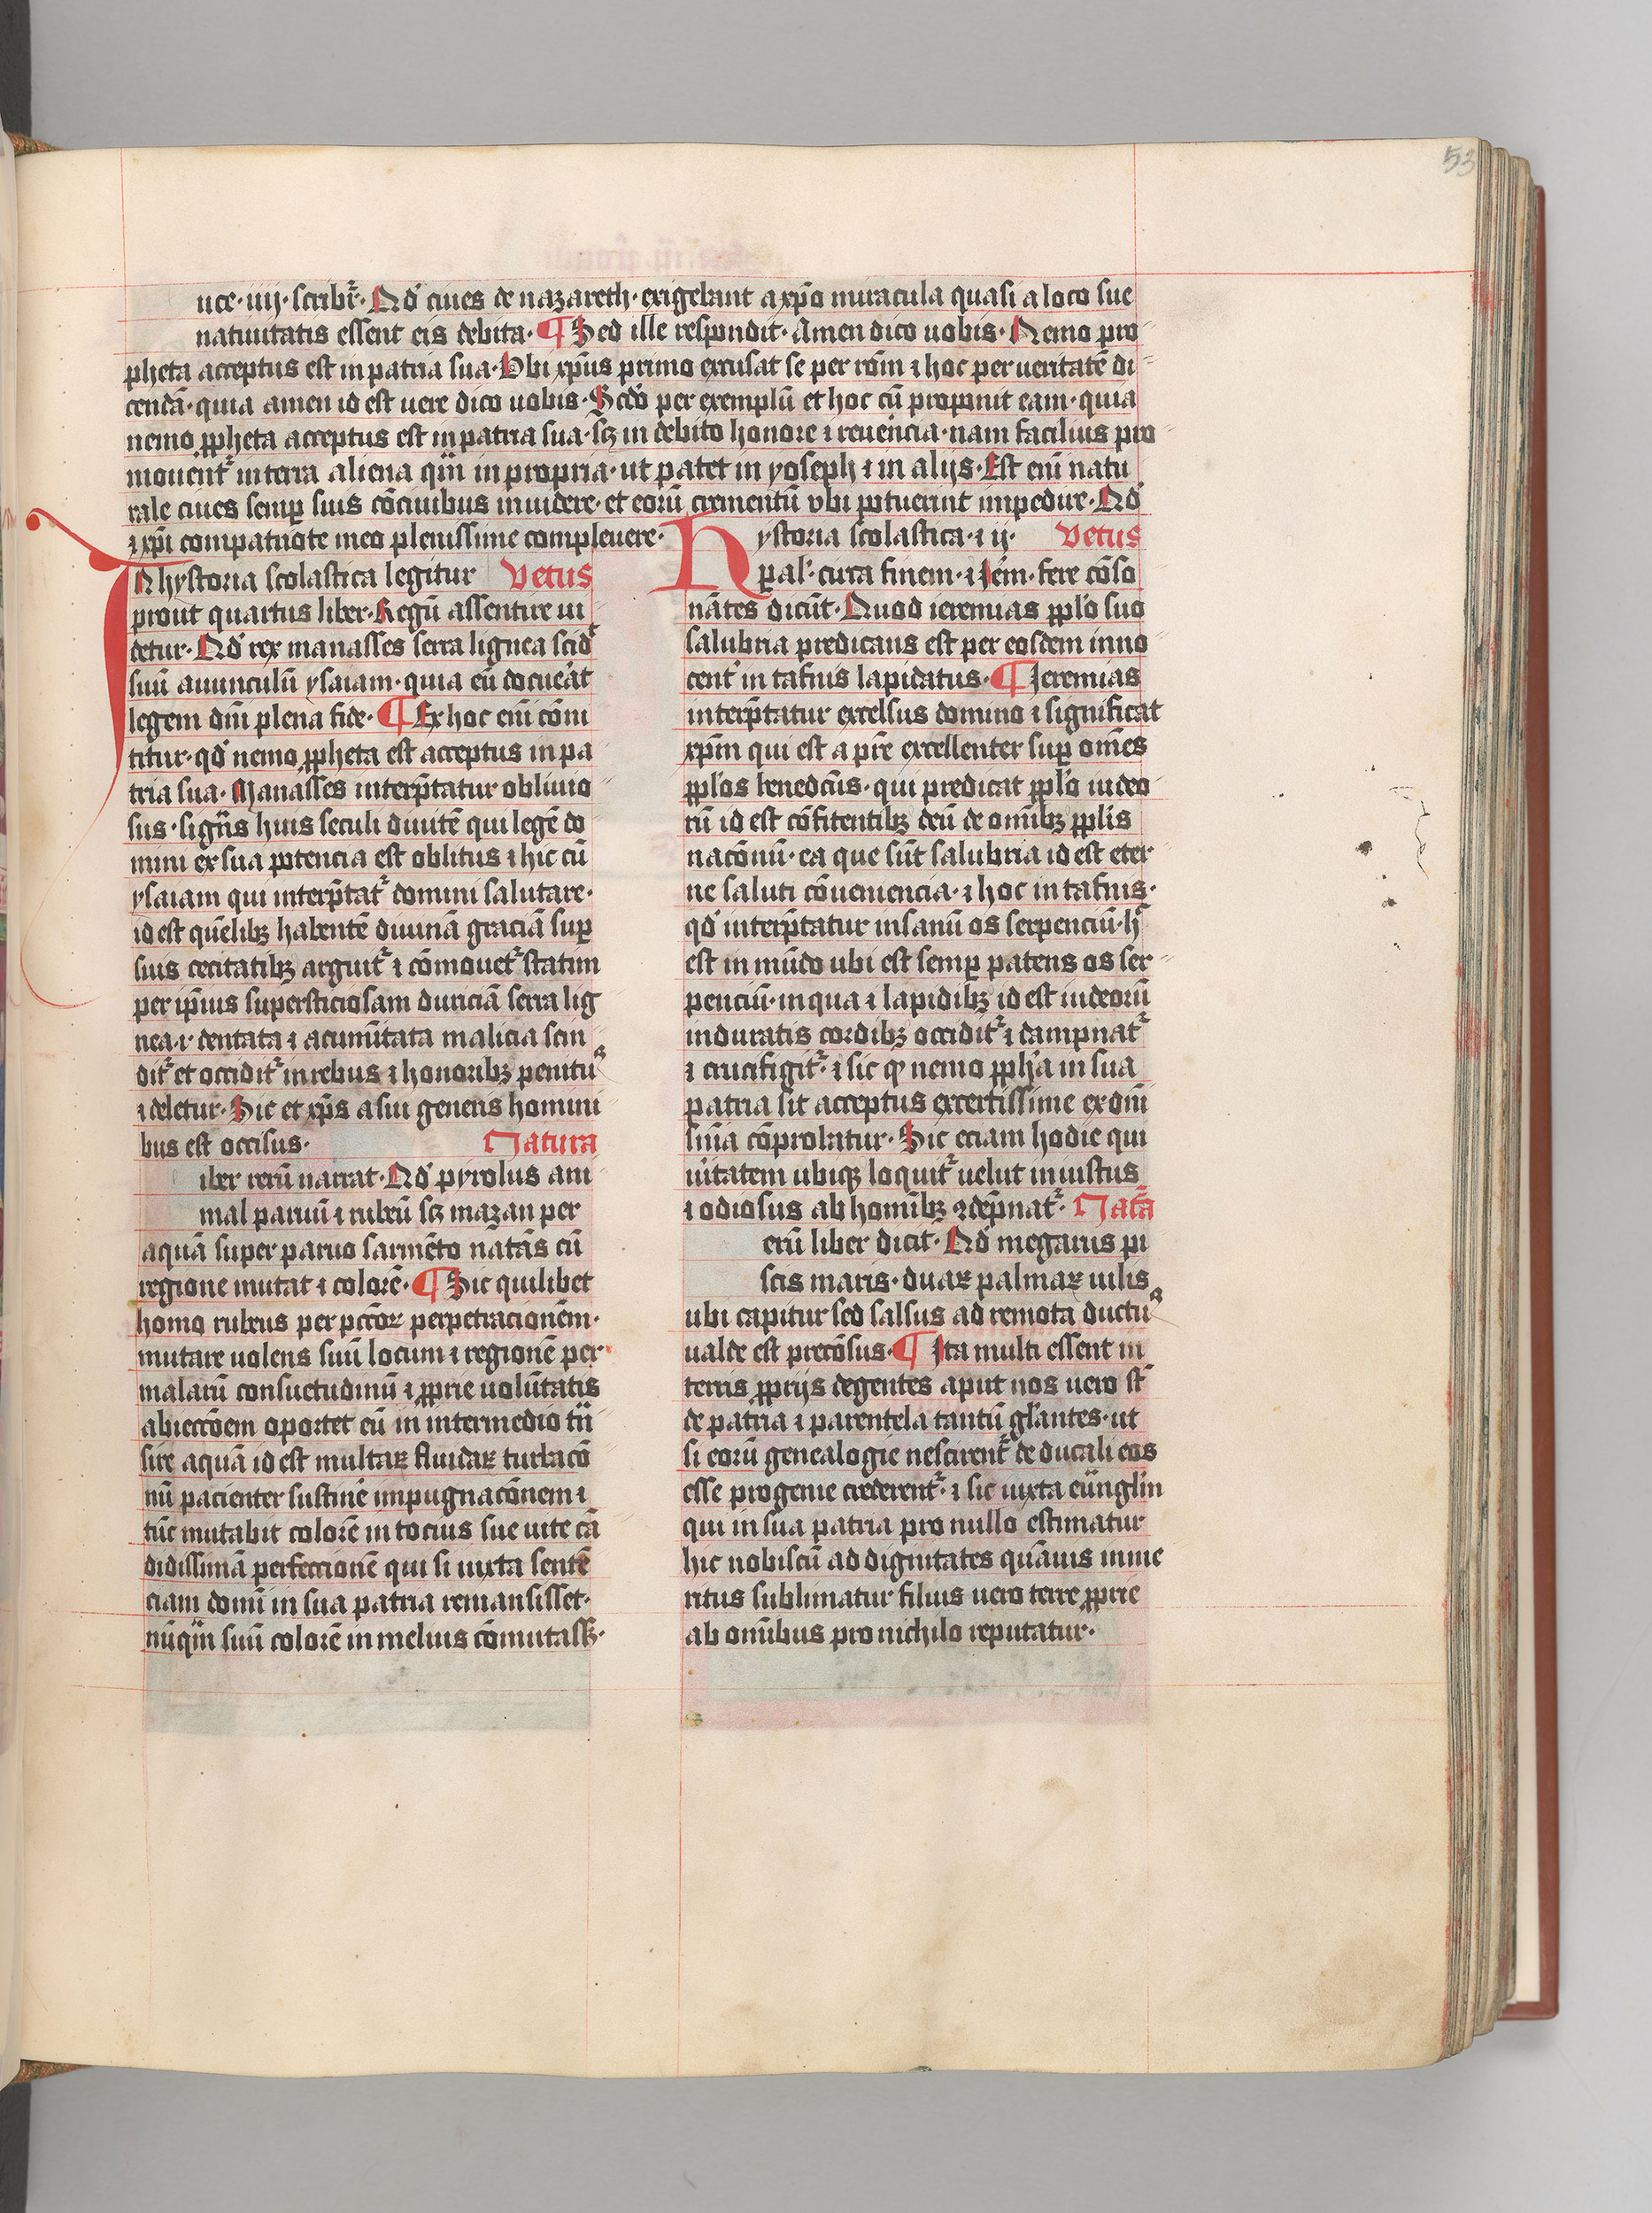 53
uce · iiij · scribit᷑ · Qd' ciues de nazareth · exigebant a xp̄o miracula quasi a loco sue
natiuitatis essent eis debita · ¶ Sed ille respondit · Amen dico uobis · Nemo pro
pheta acceptus est in patria sua · Vbi xp̄us primo excusat se per rōm ⁊ hoc per ueritatē di
cendā · quia amen id est uere dico uobis · Scd̄o per exemplū et hoc cū proponit eam · quia
nemo ꝓpheta acceptus est in patria sua · sꝫ in debito honore ⁊ reuēncia · nam facilius pro
mouent᷑ in terra aliena qm̄ in propria · ut patet in yoseph ⁊ in alijs · Est enī natu
rale ciues semꝑ suis cōciuibus inuidere · et eorū crementū vbi potuerint impedire · Qd'
⁊ xp̄i compatriote in eo plenissime compleuere ·
In hystoria scolastica legitur Vetus
prout quartus liber · Regū assentire ui
detur · Qd' rex manasses serra lignea scid᷑
suū auunculū ysaiam · quia eū docue᷑at
legem dn̄i plena fide · ¶ Ex hoc enī cōmi
titur · qd' nemo ꝓpheta est acceptus in pa
tria sua · Manasses interp̄tatur obliuio
sus · sign̄s huis seculi diuitē qui legē do
mini ex sua potencia est oblitus ⁊ hic cū
ysaiam qui interp̄tat᷑ domini salutare ·
id est quēlibꝫ habentē diuinā graciā suꝑ
suis cecitatibꝫ arguit᷑ ⁊ cōmouet᷑ statim
per ip̄ius supersticiosam duriciā serra lig
nea · i · dentata ⁊ acumītata malicia scin
dit᷑ et occidit᷑ in rebus ⁊ honoribꝫ penitu᷒
⁊ deletur · Sic et xp̄s a sui generis homini
bus est occisus · Natura
iber rerū narrat · Qd' pyrolus ani
mal paruū ⁊ rubeū sꝫ mazan per
aquā super paruo sarmēto natās cū
regione mutat ⁊ colorē · ¶ Sic quilibet
homo rubeus per pcc̄oꝝ perpetracionēm ·
mutare uolens suū locum ⁊ regionē per
malarū consuetudinū ⁊ ꝓprie uolūtatis
abieccōem oportet eū in intermedio trā
sire aquā id est multaꝝ fluidaꝝ turbacō
nū pacienter sustinē impugnacōnem ⁊
tūc mutabit colorē in tocius sue uite cā
didissimā perfeccionē qui si iuxta sentē
ciam domī in sua patria remansisset ·
nūqm̄ suū colorē in melius cōmutassꝫ ·
Hystoria scolastica · ⁊ ij · Vetus
pal' · circa finem · ⁊ Iēm · fere cōso
nātes dicūt · Quod ieremias ꝓpl'o suo
salubria predicans est per eosdem inno
cent' in tafnis lapidatus · ¶ Ieremias
interp̄tatur excelsus domino ⁊ significat
xp̄m qui est a pr̄e excellenter suꝑ om̄es
ꝓpl'os benedc̄us · qui predicat ꝓpl'o iudeo
rū id est cōfitentibꝫ deū de om̄ibꝫ ꝓpl'is
nacōnū · ea que sūt salubria id est eter
ne saluti cōueniencia · ⁊ hoc in tafnis ·
qd' interp̄tatur insanū os serpenciū · h᷒
est in mūdo ubi est semꝑ patens os ser
penciū · in qua ⁊ lapidibꝫ id est iudeorū
induratis cordibꝫ occidit᷑ ⁊ dampnat᷑
⁊ crucifigit᷑ · ⁊ sic ꝙ nemo ꝓph'a in sua
patria sit acceptus excertissime ex dn̄i
sn̄ia cōprobatur · Sic eciam hodie qui
ueritatem ubiqꝫ loquit᷑ uelut iniustus
⁊ odiosus ab homībꝫ ꝯdēpnat᷑ · Nat̄a
erū liber dicit · Qd' megarus pi
scis maris · duaꝝ palmaꝝ uilis
ubi capitur sed salsus ad remota ductu᷒
ualde est preciōsus · ¶ Ita multi essent in
terris ꝓprijs degentes aput nos uero st̄
de patria ⁊ parentela tantū gl'antes · ut
si eorū genealogie nescirent᷑ de ducali eos
esse progenie crederent᷑ · ⁊ sic iuxta eūngl'in
qui in sua patria pro nullo estimatur
hic nobiscū ad dignitates quāuis inme
ritus sublimatur filius uero terre ꝓprie
ab om̄ibus pro nichilo reputatur ·